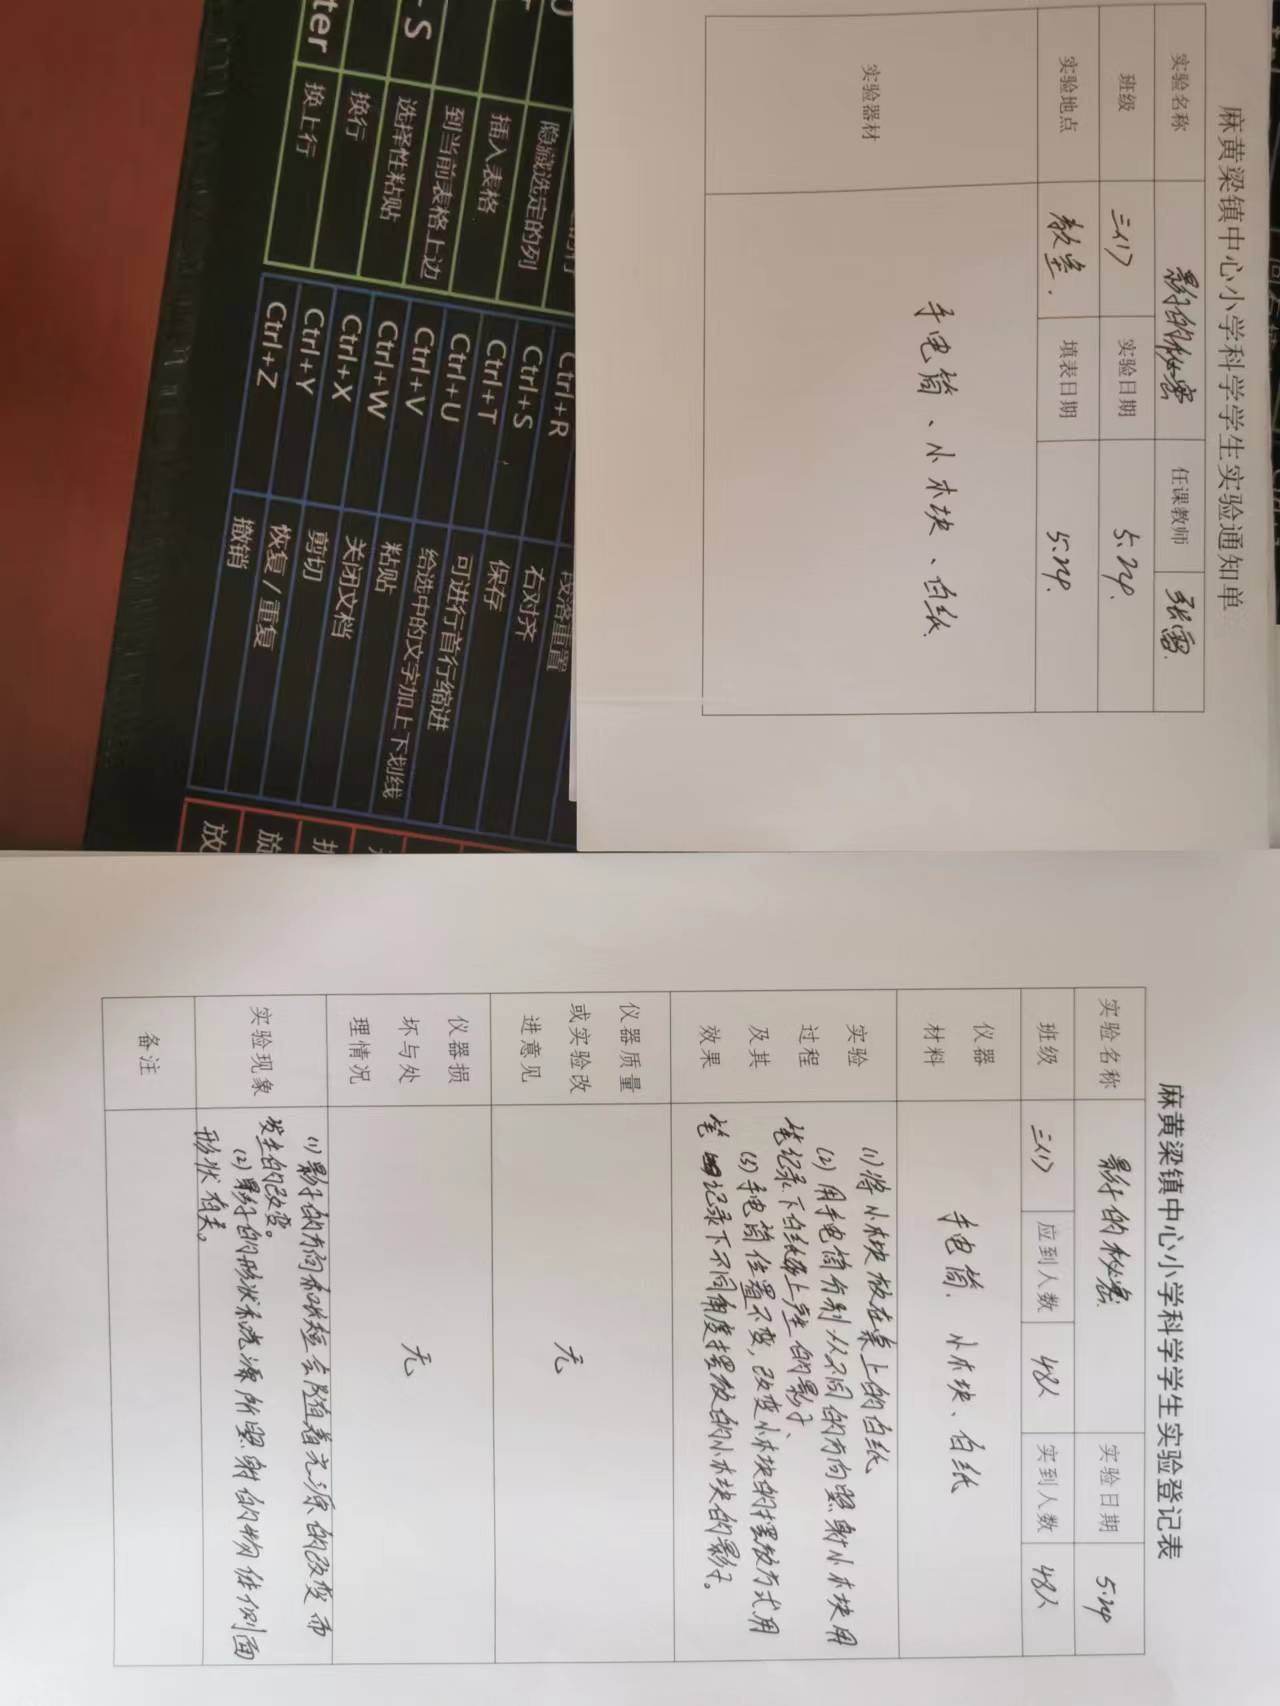 麻黄梁镇中心小学科学学生实验通知单
实验名称 影子的秘密 任课教师 张雷
班级 三(1) 实验日期 5.24.
实验地点 教室. 填表日期 5.24.
实验器材 手电筒、小木块、白纸.
麻黄梁镇中心小学科学学生实验登记表
实验名称 影子的秘密 实验日期 5.24
班级 三(1) 应到人数 48人 实到人数 48人
仪器
材料
手电筒、小木块、白纸
实验
过程
及其
效果
(1)将小木块放在桌上的白纸、
(2)用手电筒分别从不同的方向照射小木块用
笔记录下白纸上产生的影子、
(3)手电筒位置不变,改变小木块的摆放方式用
笔记录下不同角度摆放的小木块的影子。
仪器质量
或实验改
进意见
无
仪器损
坏与处
理情况
无
实验现象
(1)影子的方向和长短会随着光源的改变而
发生的改变。
(2)影子的形状和光源所照射的物体侧面
形状有关。
备注
ter
换上行
换行
S
选择性粘贴
到当前表格上边
插入表格
隐藏选定的列
Ctrl+R 段落重置
Ctrl+S 右对齐
Ctrl+T 保存
Ctrl+U 可进行首行缩进
Ctrl+V 给选中的文字加上下划线
Ctrl+W 粘贴
Ctrl+X 关闭文档
Ctrl+Y 剪切
Ctrl+Z 恢复/重复
撤销
放
旋